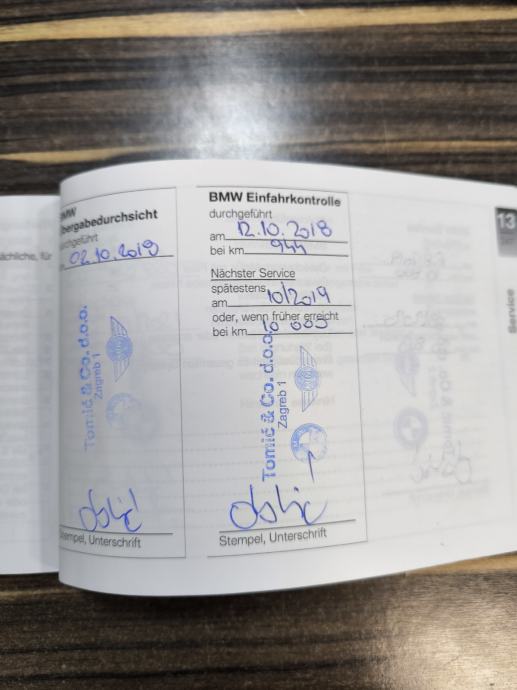 ächliche, für
BMW
bergabedurchsicht
durchgeführt
02.10.2018
Tomić & Co. d.o.o.
Zagreb 1
Stempel, Unterschrift
BMW Einfahrkontrolle
durchgeführt
am 12.10.2018
bei km 944
Nächster Service
spätestens
am 10/2019
oder, wenn früher erreicht
bei km 10 000
Tomić & Co. d.o.o.
Zagreb 1
Stempel, Unterschrift
13
Service